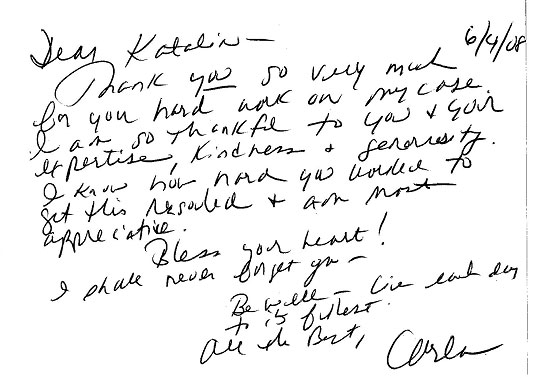 Dear Katalin — 6/4/08
Thank you so very much
for you hard work on my case.
I am so thankful to you & your
expertise, kindness & generosity.
I know how hard you worked to
get this resolved & am most
appreciative.
Bless your heart!
I shall never forget you —
Be well — Live each day
to is fullest.
All the Best,
Carla